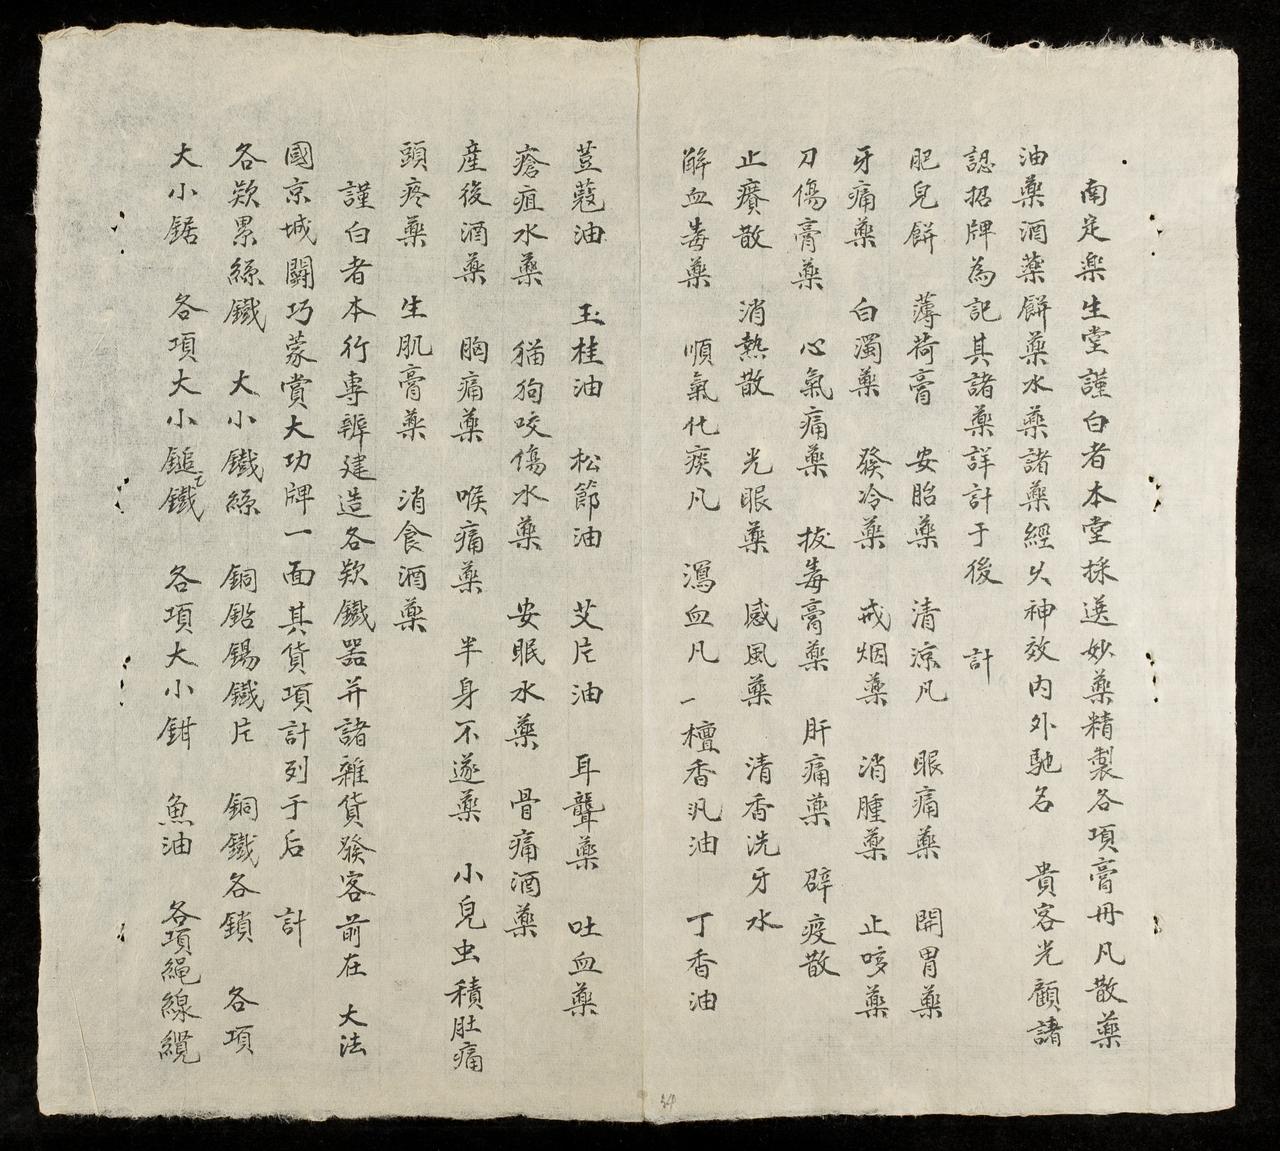 南定楽生堂謹白者本堂採選妙藥精製各項膏丹凡散藥
油藥酒藥餅藥水藥諸藥經久神效內外馳名 貴客光顧請
認招牌為記其諸藥詳計于後 計
肥兒餅 薄荷膏 安胎藥 清凉凡 眼痛藥 開胃藥
牙痛藥 白濁藥 發冷藥 戒烟藥 消腫藥 止哆藥
刀傷膏藥 心氣痛藥 拔毒膏藥 肝痛藥 辟疫散
止癀散 消熱散 光眼藥 感風藥 清香洗牙水
解血毒藥 順氣化痰凡 瀉血凡 一檀香汎油 丁香油
荳蔻油 玉桂油 松節油 艾片油 耳聾藥 吐血藥
瘡疽水藥 猫狗咬傷水藥 安眠水藥 骨痛酒藥
産後酒藥 胸痛藥 喉痛藥 半身不遂藥 小兒虫積肚痛
頭疼藥 生肌膏藥 消食酒藥
謹白者本行專辦建造各欵鐵器并諸雜貨發客前在 大法
國京城鬪巧蒙賞大功牌一面其貨項計列于后 計
各欵累絲鐵 大小鐵絲 銅鉛錫鐵片 銅鐵各鎖 各項
大小鋸 各項大小鎚鐵 各項大小鉗 魚油 各項繩線纜